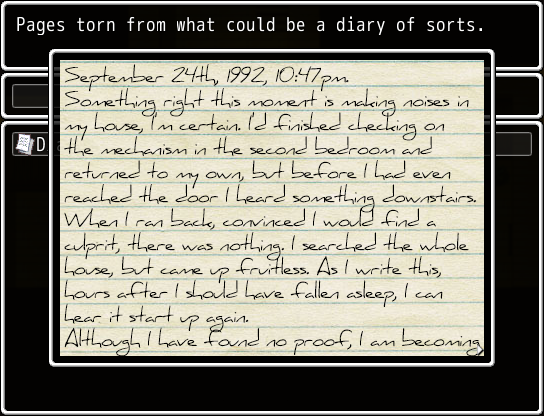 Pages torn from what could be a diary of sorts.
September 24th, 1992, 10:47pm.
Something right this moment is making noises in
my house, I'm certain. I'd finished checking on
D
the mechanism in the second bedroom and
returned to my own, but before I had even
reached the door I heard something downstairs.
When I ran back, convinced I would find a
culprit, there was nothing. I searched the whole
house, but came up fruitless. As I write this,
hours after I should have fallen asleep, I can
hear it start up again.
Although I have found no proof, I am becoming